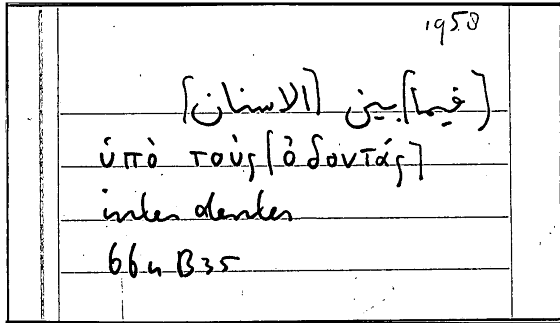 1958
[فيما] بين [الاسنان]
ὑπὸ τοὺς [ὀδοντάς]
inter dentes
664 B35